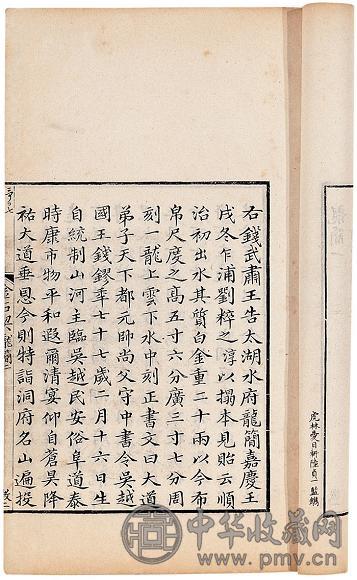 右錢武肅王告太湖水府龍簡嘉慶壬
戌冬乍浦劉粹之淳以搨本見貽云順
治初出水其質白金重二十兩以今布
帛尺度之高五寸六分廣三寸七分周
刻一龍上雲下水中刻正書文曰大道
弟子天下都元帥尚父守中書令吳越
國王錢鏐年七十七歲二月十六日生
自統制山河主臨吳越民安俗阜道泰
時康市物平和遐爾清宴仰自蒼昊降
祐大道垂恩今則特詣洞府名山遍投
虎林愛日軒陸貞一監鐫
中华收藏网
www.pmv.cn